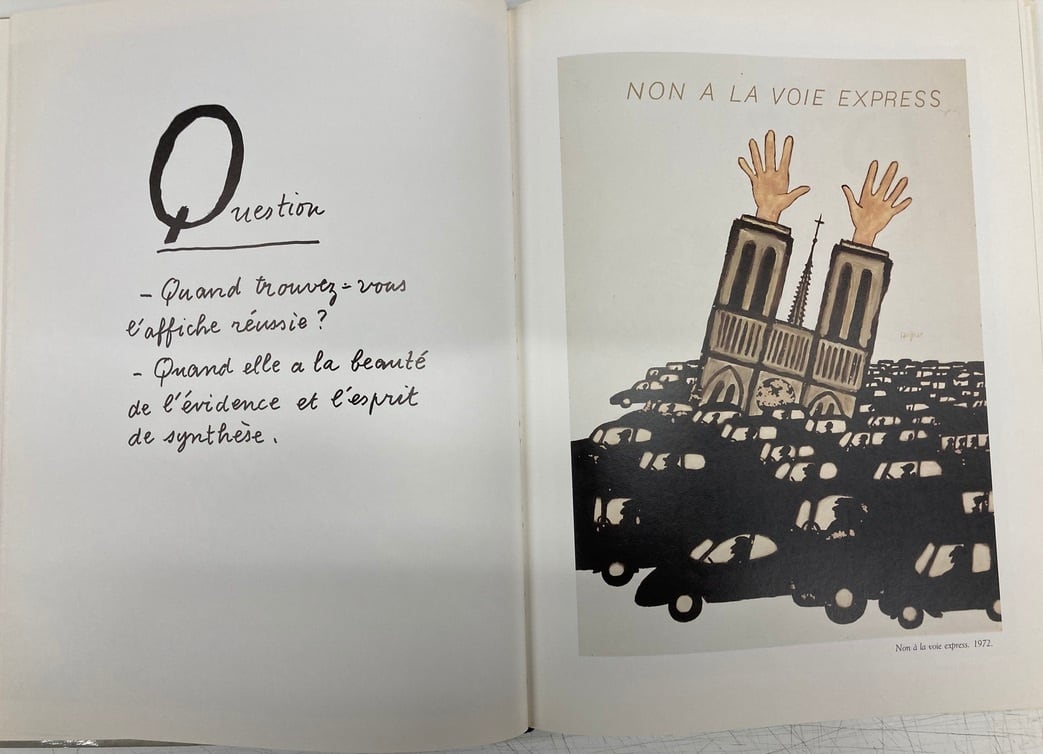 Question
- Quand trouvez-vous
l'affiche réussie ?
- Quand elle a la beauté
de l'évidence et l'esprit
de synthèse.
NON A LA VOIE EXPRESS
Non à la voie express. 1972.